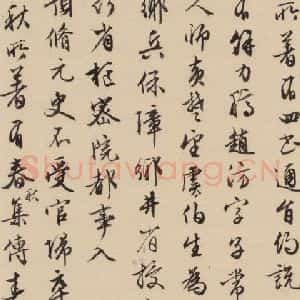 所著有四書通旨約說
餘力 趙汸字子常
人師黃楚望虞伯生為
鄉兵保障鄉井省授
行省樞密院都事入
預脩元史不受官歸卒
秋所著有春秋集傳春
Shufawang.CN